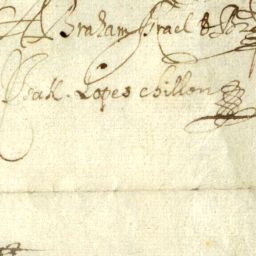 Abraham Israel
Isak. Lopes chillon